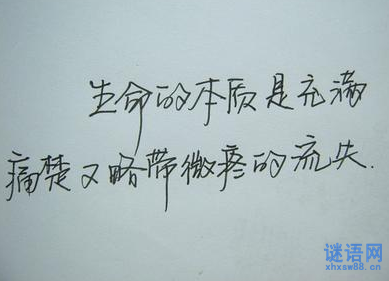 生命的本质是充满
痛楚又略带微疼的流失.
谜语网
xhxsw88.cn